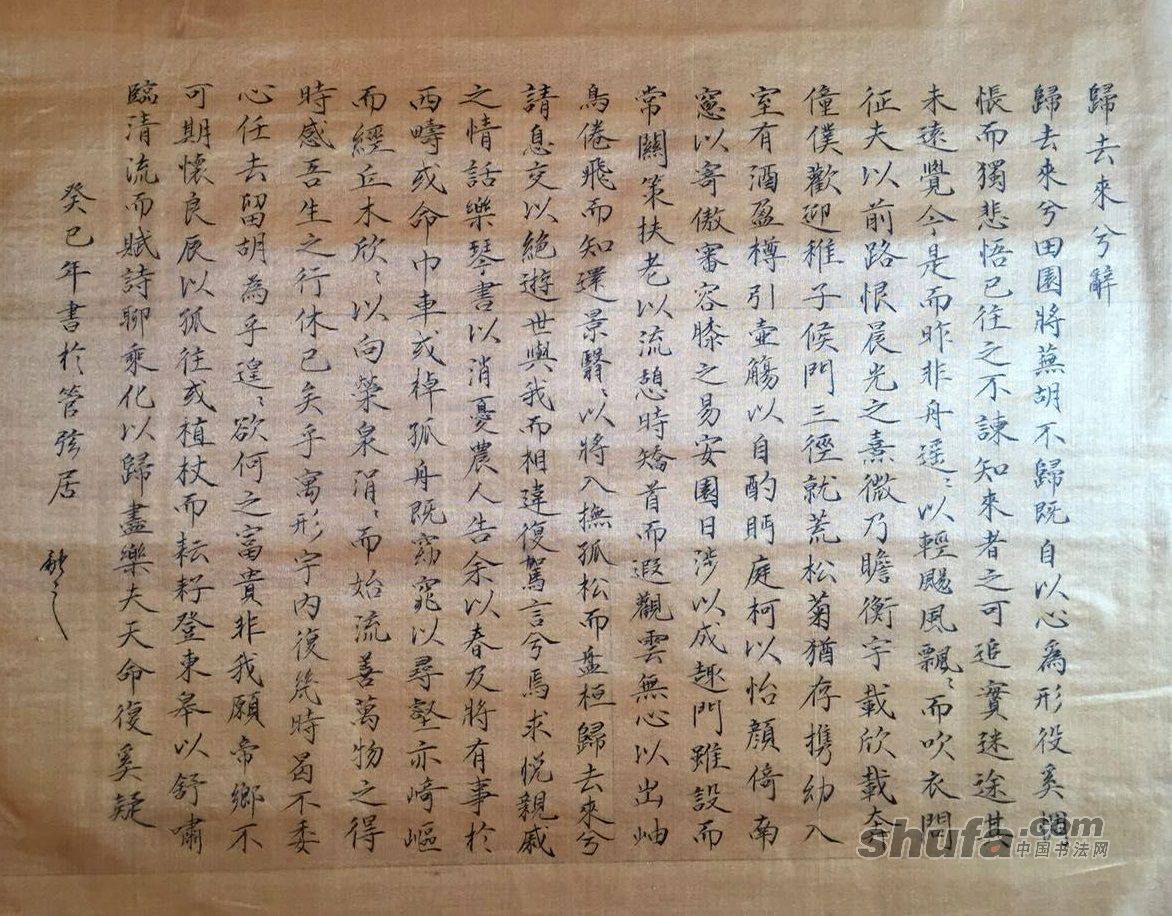 歸去來兮辭
歸去來兮田園將蕪胡不歸既自以心為形役奚惆
悵而獨悲悟已往之不諫知來者之可追實迷途其
未遠覺今是而昨非舟遥〻以輕颺風飄〻而吹衣問
征夫以前路恨晨光之熹微乃瞻衡宇載欣載奔
僮僕歡迎稚子候門三徑就荒松菊猶存携幼入
室有酒盈樽引壺觴以自酌眄庭柯以怡顏倚南
窻以寄傲審容膝之易安園日涉以成趣門雖設而
常關策扶老以流憩時矯首而遐觀雲無心以出岫
鳥倦飛而知還景翳〻以將入撫孤松而盤桓歸去來兮
請息交以絕遊世與我而相違復駕言兮焉求悅親戚
之情話樂琴書以消憂農人告余以春及將有事於
西疇或命巾車或棹孤舟既窈窕以尋壑亦崎嶇
而經丘木欣〻以向榮泉涓〻而始流善萬物之得
時感吾生之行休已矣乎寓形宇內復幾時曷不委
心任去留胡為乎遑〻欲何之富貴非我願帝鄉不
可期懷良辰以孤往或植杖而耘耔登東皋以舒嘯
臨清流而賦詩聊乘化以歸盡樂夫天命復奚疑
癸巳年書於管弦居
shufa.com
中国书法网